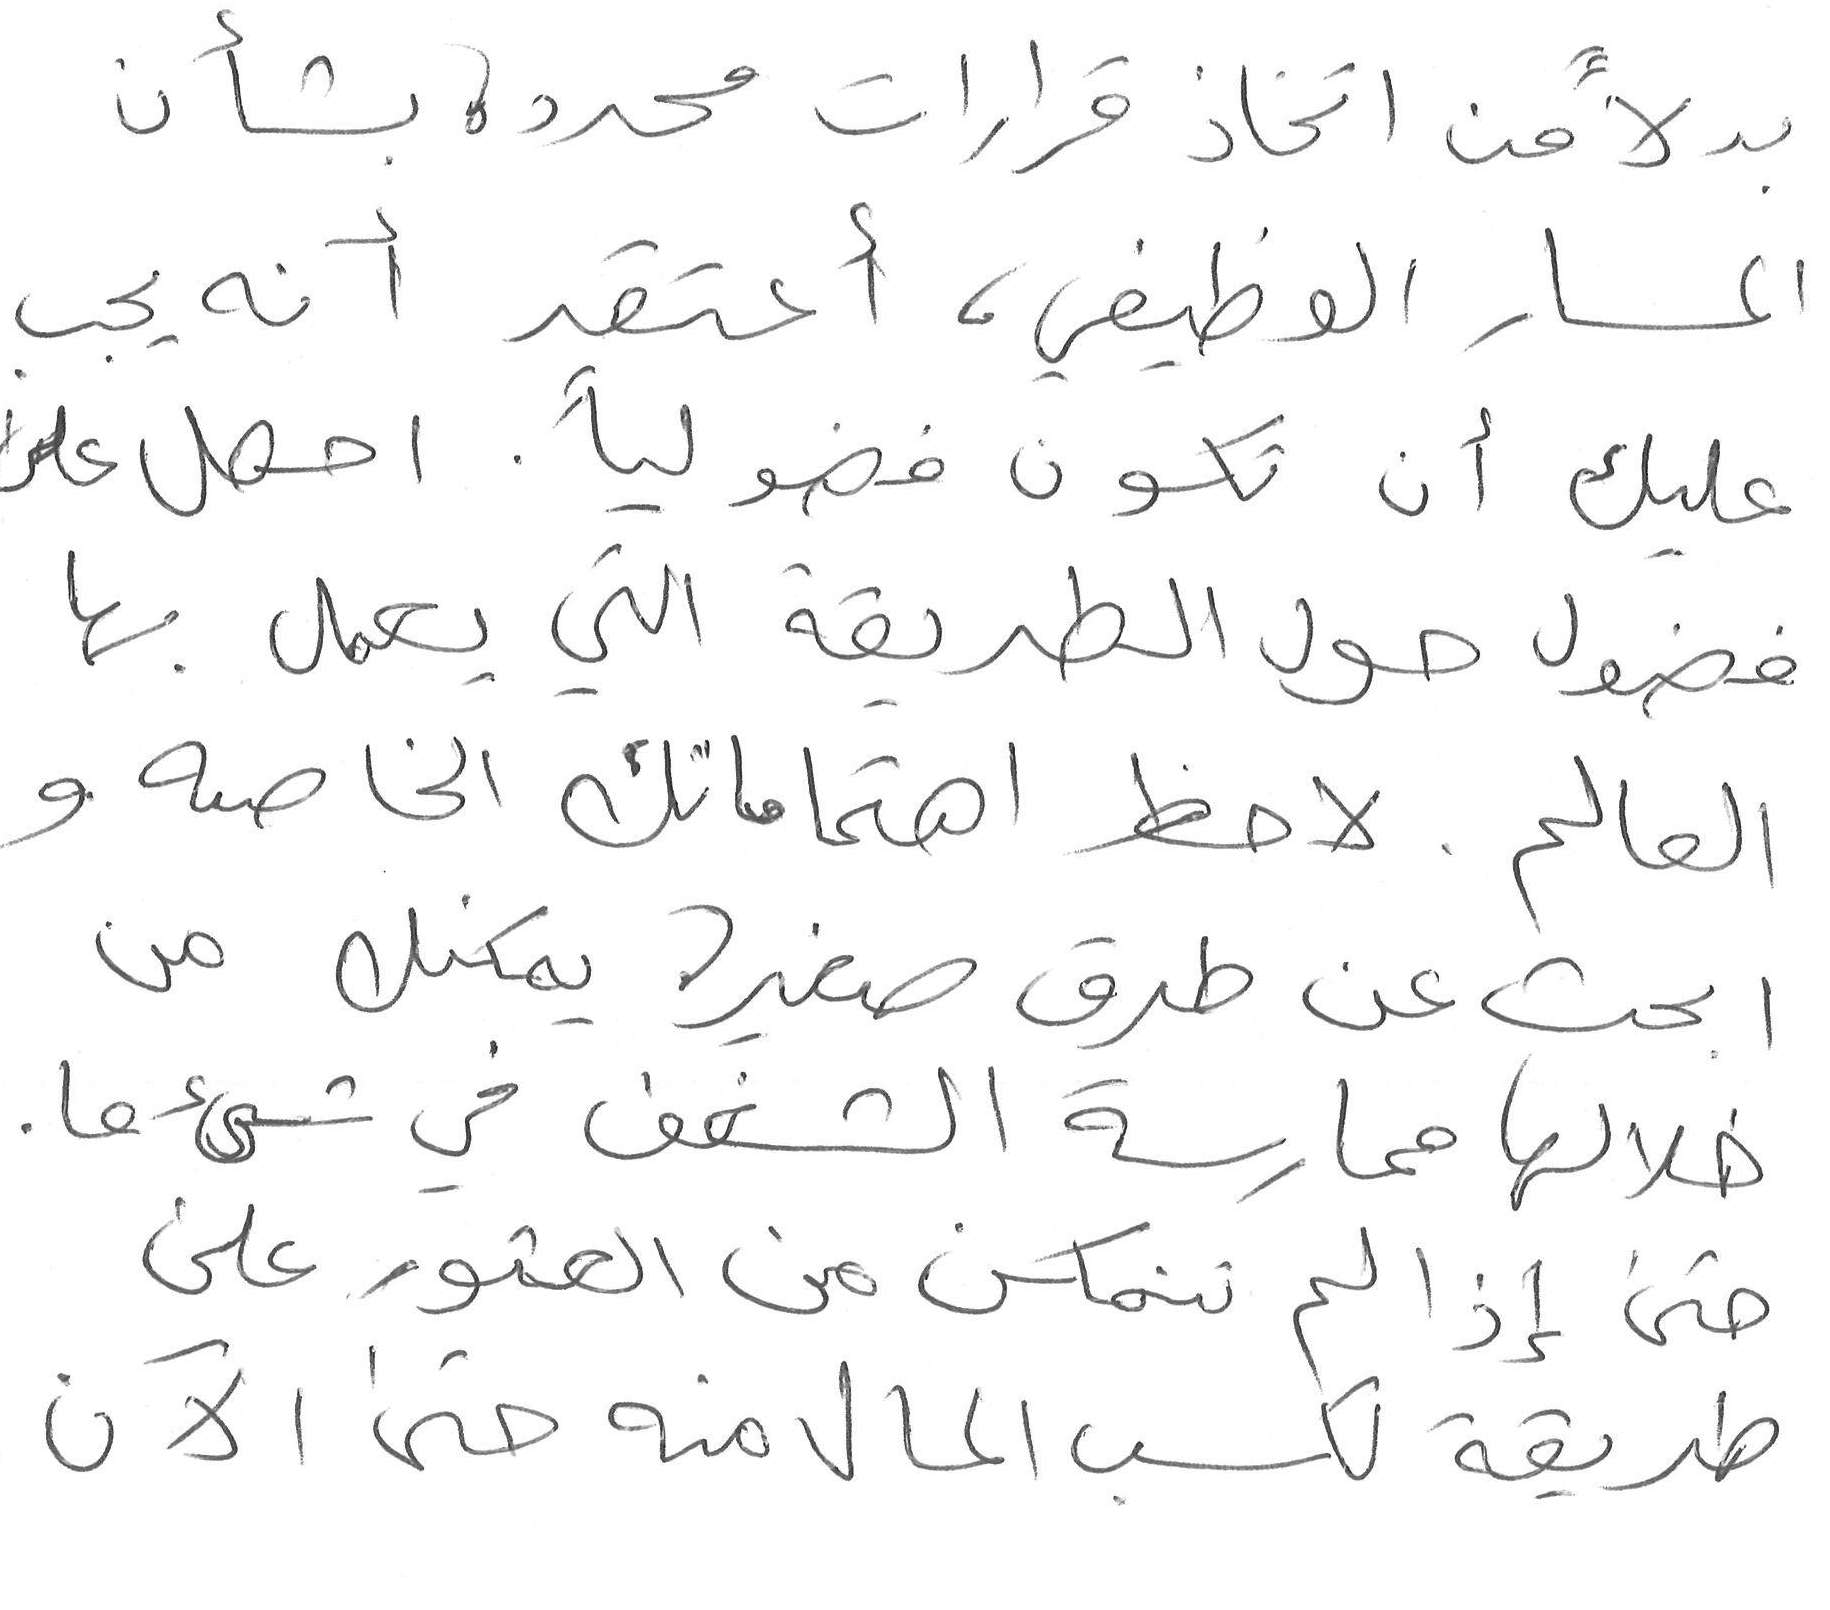 بدلاً من اتخاذ قرارات محددة بشأن
المسار الوظيفي، أعتقد أنه يجب
عليك أن تكون فضولياً. احصل على
فضول حول الطريقة التي يعمل بها
العالم. لاحظ اهتماماتك الخاصه و
ابحث عن طرق صغيرة يمكنك من
خلالها ممارسة الشغف في شيء ما.
حتى إذا لم تتمكن من العثور على
طريقة لكسب المال منه حتى الآن